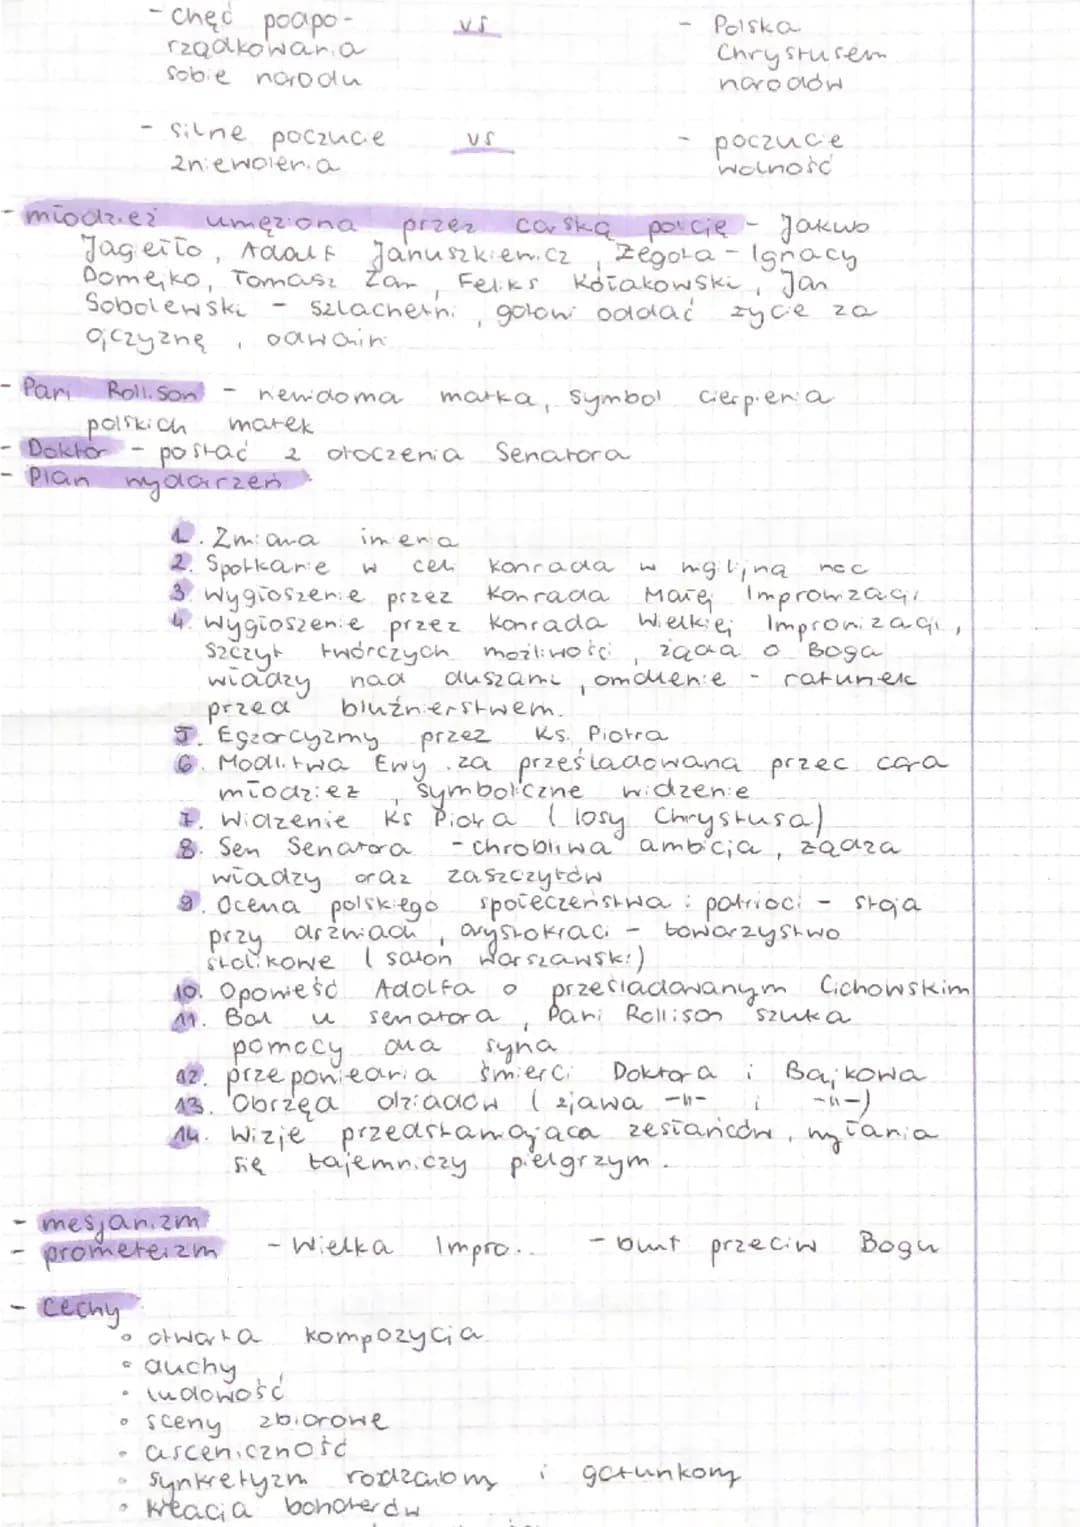 - chęć podpo- vs - Polska
rządkowania Chrystusem
sobie narodu narodów
- silne poczucie vs - poczucie
zniewolenia wolność
- młodzież umęziona przez carską porcię - Jakub
Jagiełło, Adolf Januszkiewicz, Żegota - Ignacy
Domejko, Tomasz Zan, Feliks Kółakowski, Jan
Sobolewski - szlachetni, gotowi oddać życie za
ojczyznę, odważni
- Pani Rollison - niewidoma matka, symbol cierpienia
polskich matek
- Doktor - postać z otoczenia Senatora
- Plan wydarzeń
1. Zmiana imienia
2. Spotkanie w celi Konrada w wigilijną noc
3. Wygłoszenie przez Konrada Małej Improwizacji
4. Wygłoszenie przez Konrada Wielkiej Improwizacji,
szczyt twórczych możliwości, żąda o Boga
władzy nad duszami, omdlenie - ratunek
przed bluźnierstwem.
5. Egzorcyzmy przez Ks. Piotra
6. Modlitwa Ewy za prześladowaną przec cara
młodzież, symboliczne widzenie
7. Widzenie Ks Piotra (losy Chrystusa)
8. Sen Senatora - chrobliwa ambicja, żądza
władzy oraz zaszczytów
9. Ocena polskiego społeczeństwa: patrioci - stoją
przy drzwiach, arystokraci - towarzystwo
stolikowe (salon warszawski)
10. Opowieść Adolfa o prześladowanym Cichowskim
11. Bal u senatora, Pani Rollison szuka
pomocy dla syna
12. przeponiedania śmierci Doktora i Bajkowa
13. Obrzęd dziadów (zjawa -||- i -||-)
14. Wizje przedstawiająca zesłańców, wyłania
się tajemniczy pielgrzym.
- mesjanizm
- prometeizm - Wielka Impro.. - bunt przeciw Bogu
- cechy
• otwarta kompozycja
• duchy
• ludowość
• sceny zbiorowe
• asceniczność
• synkretyzm rodzajowy i gatunkowy
• kreacja bohaterów